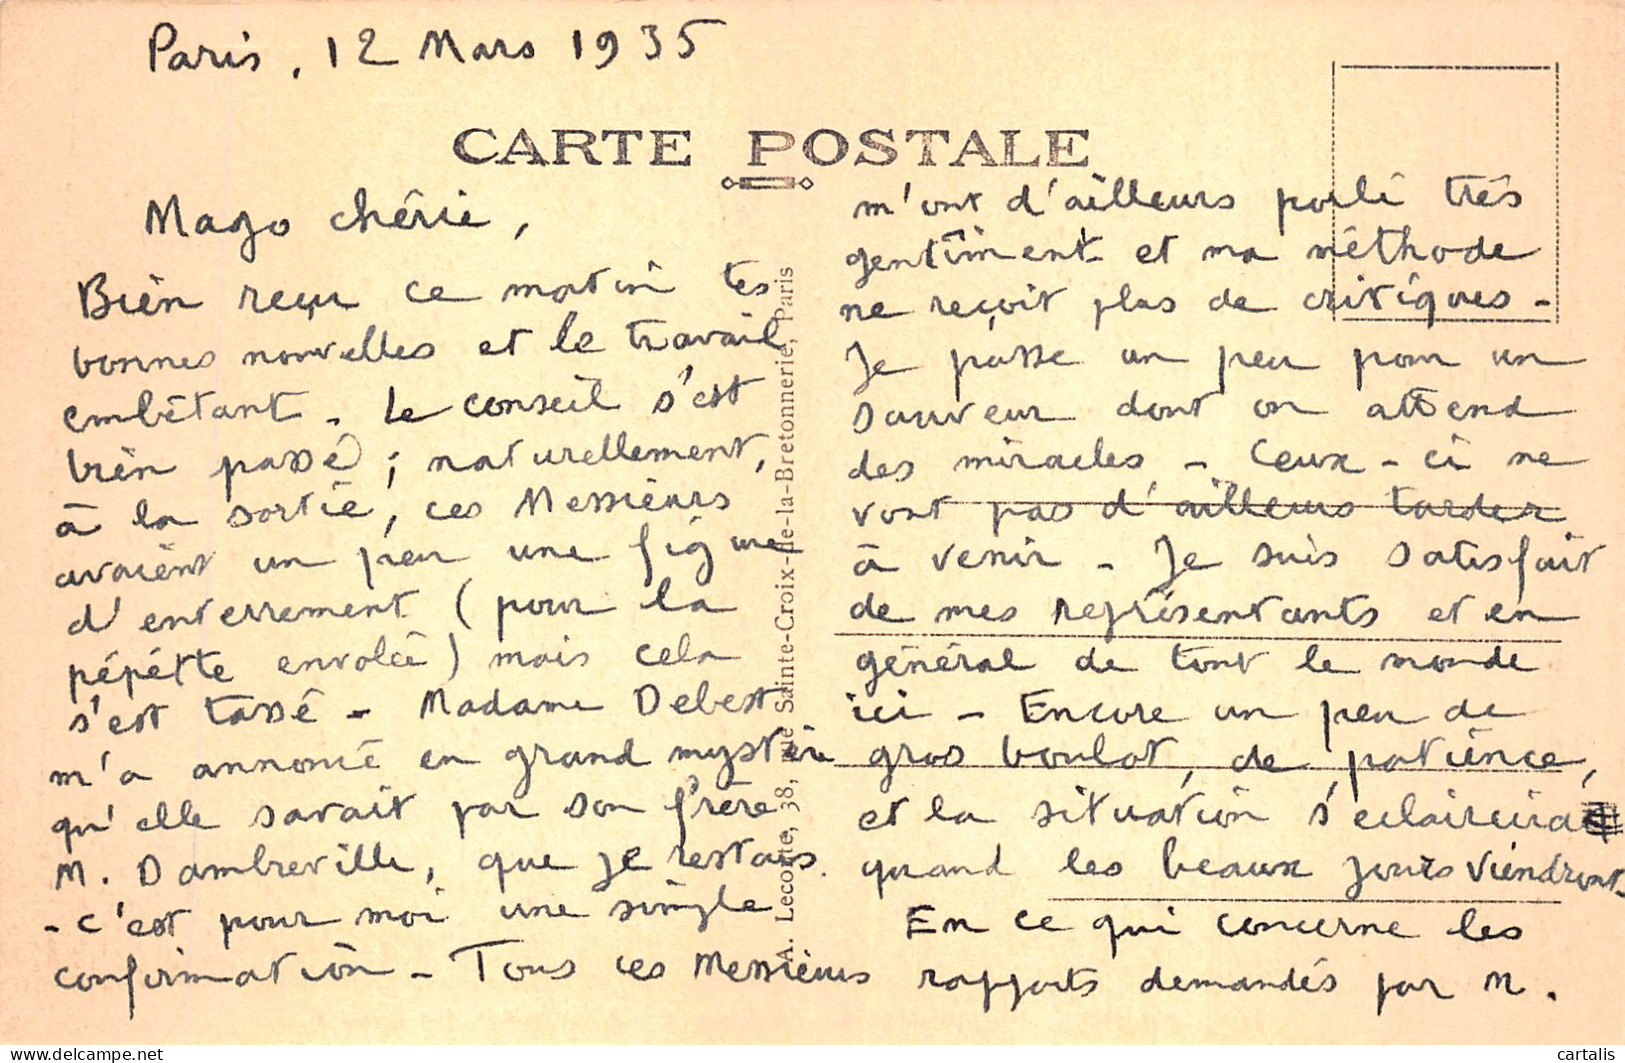 Paris, 12 Mars 1935
CARTE POSTALE
Mago chérie,
Bien reçu ce matin tes
bonnes nouvelles et le travail
embêtant - Le conseil s'est
bien passé ; naturellement,
à la sortie, ces Messieurs
avaient un peu une figure
d'enterrement (pour la
pépétte envolée) mais cela
s'est tassé - Madame Debest
m'a annoncé en grand mystère
qu'elle savait par son frère
M. Dambreville, que je restais
- c'est pour moi une simple
confirmation - Tous ces Messieurs
m'ont d'ailleurs parlé très
gentiment et ma méthode
ne reçoit plus de critiques -
Je passe un peu pour un
sauveur dont on attend
des miracles - Ceux-ci ne
vont pas d'ailleurs tarder
à venir - Je suis satisfait
de mes représentants et en
général de tout le monde
ici - Encore un peu de
gros boulot, de patience,
et la situation s'eclaircira
quand les beaux jours viendront -
En ce qui concerne les
rapports demandés par M.
A. Leconte, 38, rue Sainte-Croix-de-la-Bretonnerie, Paris
cartalis